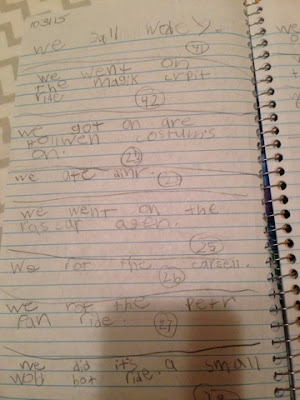 103115
we sall wodey.
41
we went on
the magik crpit
ride
42
we got on are
Hollwen costums
on.
we ate dinr.
we went on the
rascar agen.
25
we rot the carsell.
26
we rot the Petr
Pan ride.
27
we did it's a small
wolr bot ride.